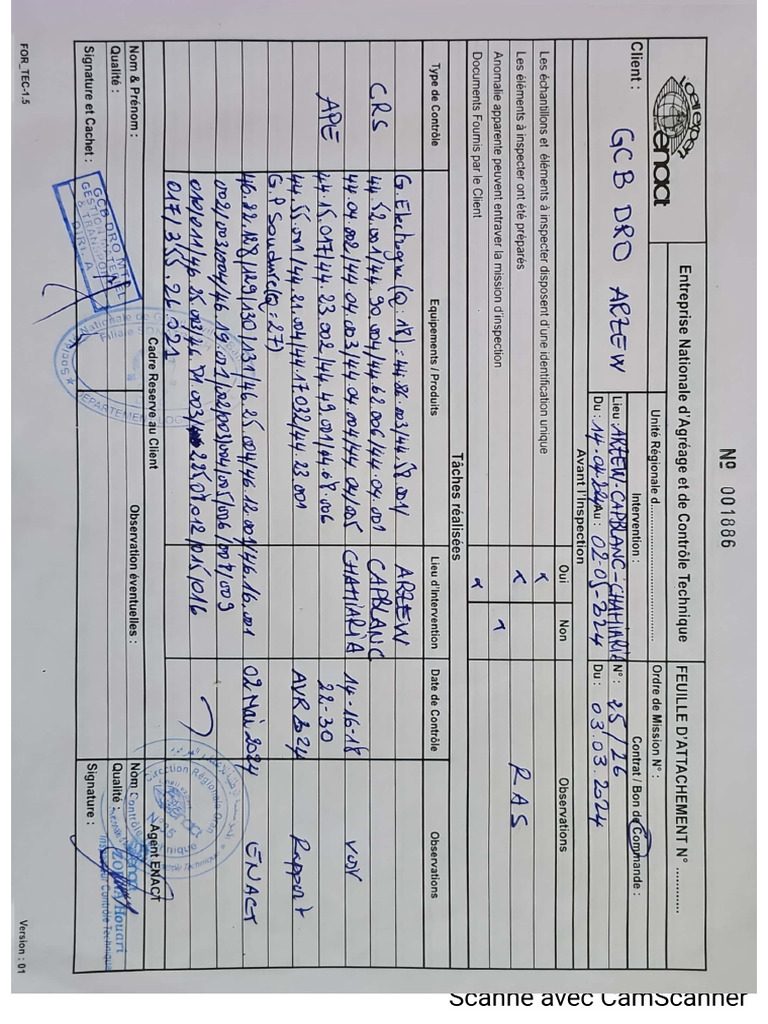 Nº 001886
enact
Entreprise Nationale d'Agréage et de Contrôle Technique
FEUILLE D'ATTACHEMENT N° ............
Unité Régionale d..............................
Ordre de Mission N° :
Client : GCB DRO ARZEW
Intervention :
Contrat / Bon de Commande :
Lieu : ARZEW-CAPBLANC-CHAHIARIA
N° : 25/26
Du : 14.04.2024 Au : 02-05-2024
Du : 03.03.2024
Avant l'Inspection
Oui
Non
Observations
Les échantillons et éléments à inspecter disposent d'une identification unique
Les éléments à inspecter ont été préparés
RAS
Anomalie apparente peuvent entraver la mission d'inspection
Documents Fournis par le Client
Tâches réalisées
Type de Contrôle
Equipements / Produits
Lieu d'Intervention
Date de Contrôle
Observations
G. Electrogne (Q: 18) = 44.86.003/44.58.001/
ARZEW
CRS
44.52.001/44.90.004/44.62.006/44.04.001
CAPBLANC
44.04.002/44.04.003/44.04.004/44.04/005
CHAHIARIA
14-16-18
voir
APE
44.15.017/44.23.002/44.49.001/44.68.006
22-30
44.55.001/44.21.004/44.17.032/44.23.001
AVR 2024
Rapport
G.P Soudure (Q=27)
46.22.128/129/130/131/46.25.004/46.12.001/46.16.001
02 Mai 2024
ENACT
002/003/004/46.19.001/002/003/004/005/006/007/009
010/011/46.25.003/46.71.003/
012/015/016
017/355.26.021
Cadre Reserve au Client
Agent ENACT
Nom & Prénom :
Observation éventuelles :
Nom :
Qualité :
Qualité :
Signature et Cachet :
Signature :
GCB DRO MTEL
GESTION
& TRANSPORT
Nationale de G
Filiale SON
DEPARTEMENT LOG
Direction Régionale Oran
N°35
Contrôle Technique
Houari
Contrôle Technique
FOR_TEC-1.5
Version : 01
Scanné avec CamScanner